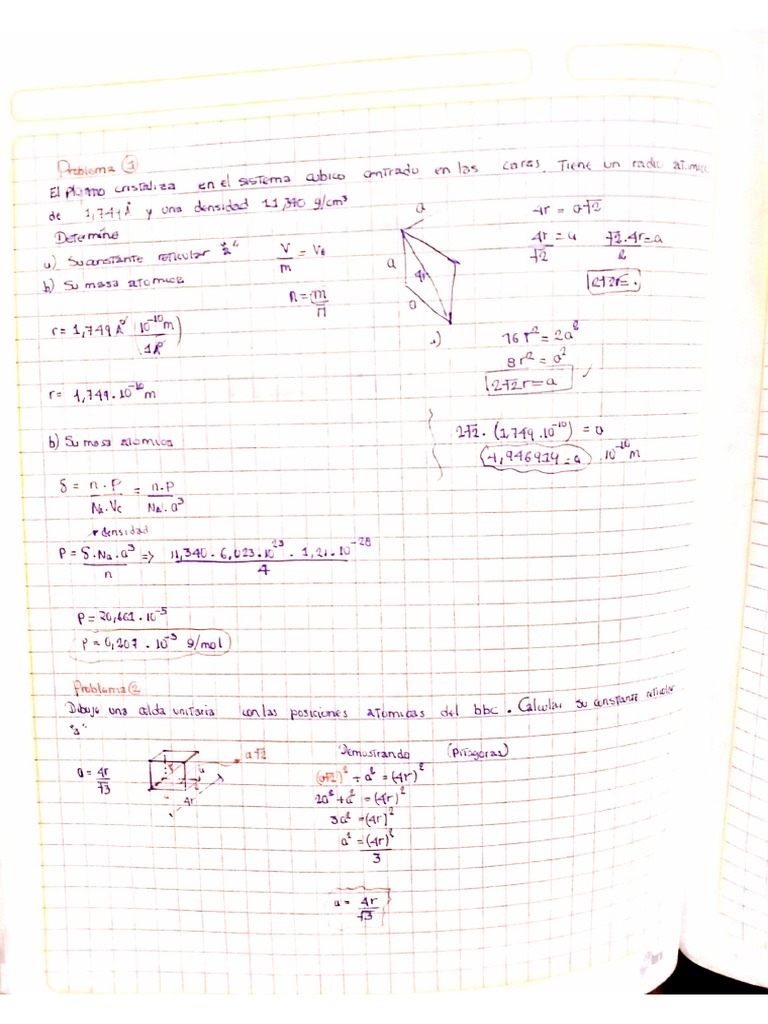 Problema 1
El plomo cristaliza en el sistema cubico centrado en las caras. Tiene un radio atomico
de 1,749 Å y una densidad 11,340 g/cm³
Determine
a) Su constante reticular "a"
b) Su masa atomica
V/m = Ve
n = m/M
r = 1,749 Å (10⁻¹⁰ m / 1 Å)
r = 1,749 . 10⁻¹⁰ m
a
a
4r
a
4r = a√2
4r/√2 = a
√2.4r/2 = a
2√2r = .
a)
16 r² = 2a²
8r² = a²
2√2 r = a
2√2 . (1,749 . 10⁻¹⁰) = a
4,946914 = a . 10⁻¹⁰ m
b) Su masa atomica
δ = n.P/Na.Vc = n.P/Na.a³
densidad
P = δ.Na.a³/n => 11,340 . 6,023 . 10²³ . 1,21 . 10⁻²⁸/4
P = 20,661 . 10⁻⁵
P = 0,207 . 10⁻³ g/mol
Problema 2
Dibuje una celda unitaria con las posiciones atomicas del bbc. Calcular su constante reticular
"a"
a = 4r/√3
a√2
4r
Demostrando (Pitagoras)
(a√2)² + a² = (4r)²
2a² + a² = (4r)²
3a² = (4r)²
a² = (4r)²/3
a = 4r/√3